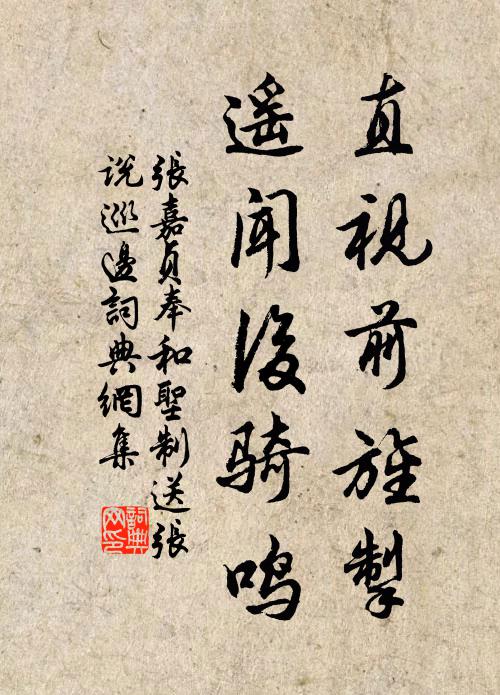 直視前旌掣
遥聞後騎鳴
張嘉貞奉和聖制送張
説巡邊詞典網集
詞典网印